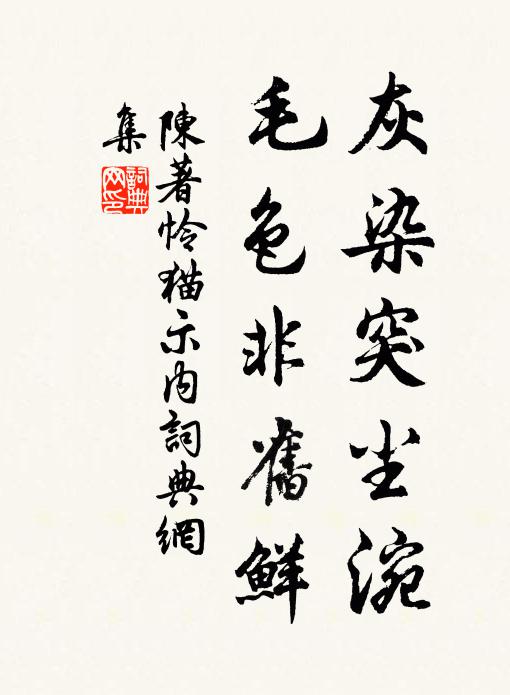 灰染突尘涴
毛色非舊鮮
陳著怜猫示内詞典網
集
詞典
网印